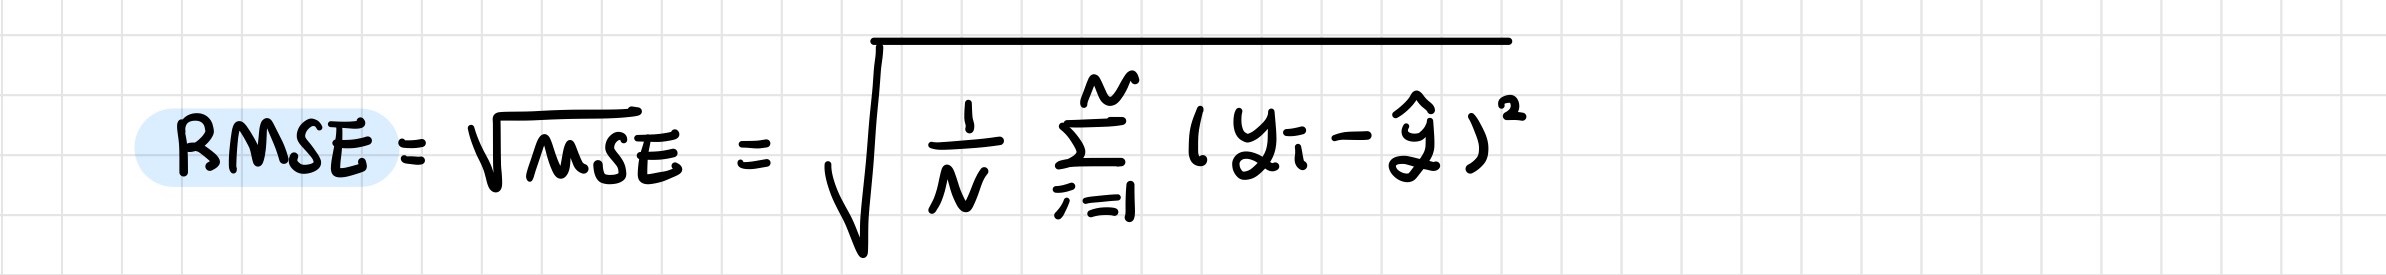 RMSE = √MSE = √(1/N ∑_{i=1}^{N} (yᵢ - ŷ)²)